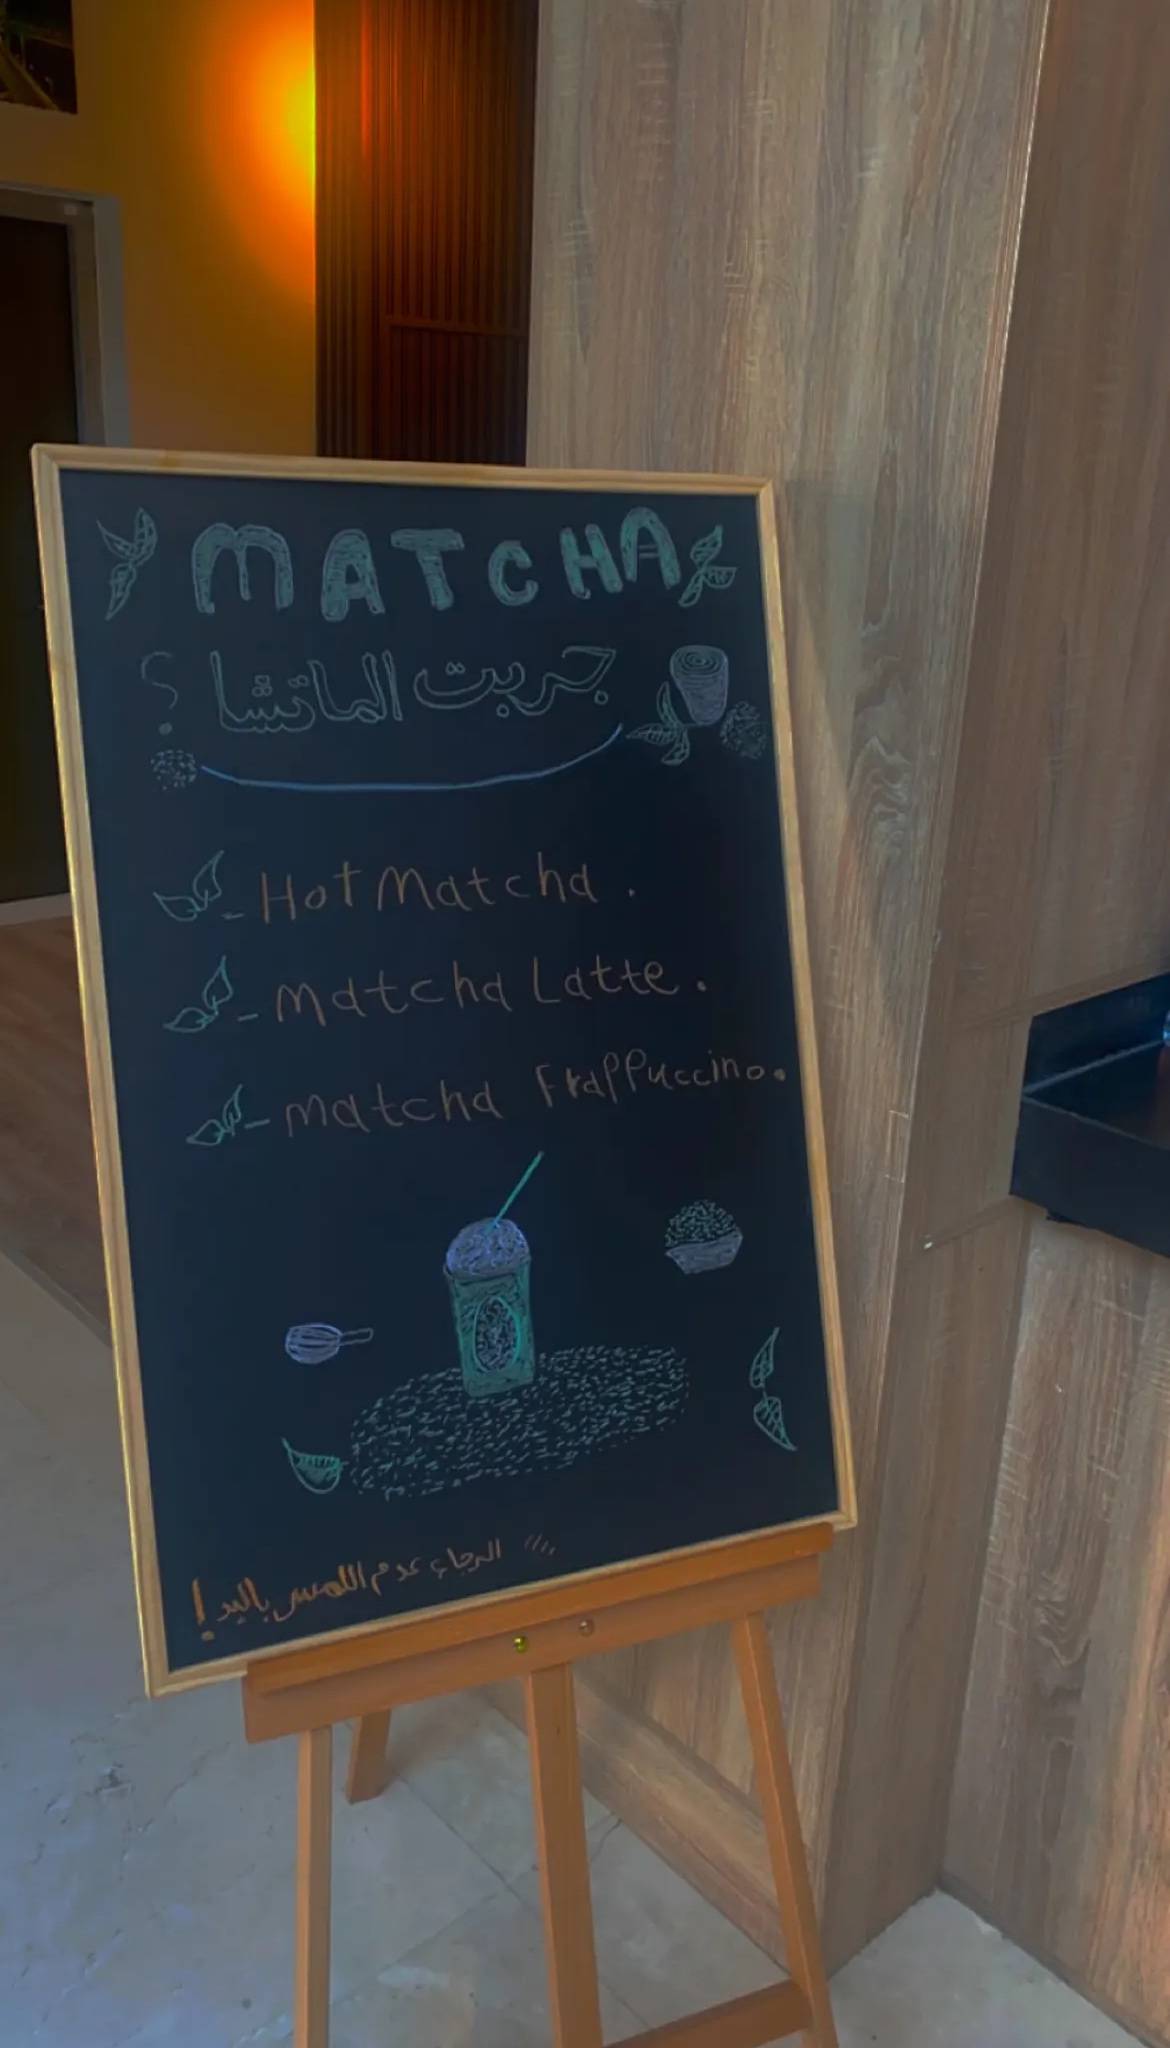 MATCHA
جربت الماتشا ؟
- Hot Matcha .
- Matcha Latte .
- Matcha Frappuccino .
الرجاء عدم اللمس باليد !